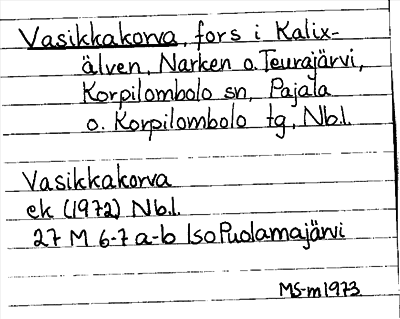 Vasikkakorva, fors i Kalix-
älven, Narken o. Teurajärvi,
Korpilombolo sn, Pajala
o. Korpilombolo tg, Nb.l.
Vasikkakorva
ek (1972) Nb.l.
27 M 6-7 a-b IsoPuolamajärvi
MS-m1973